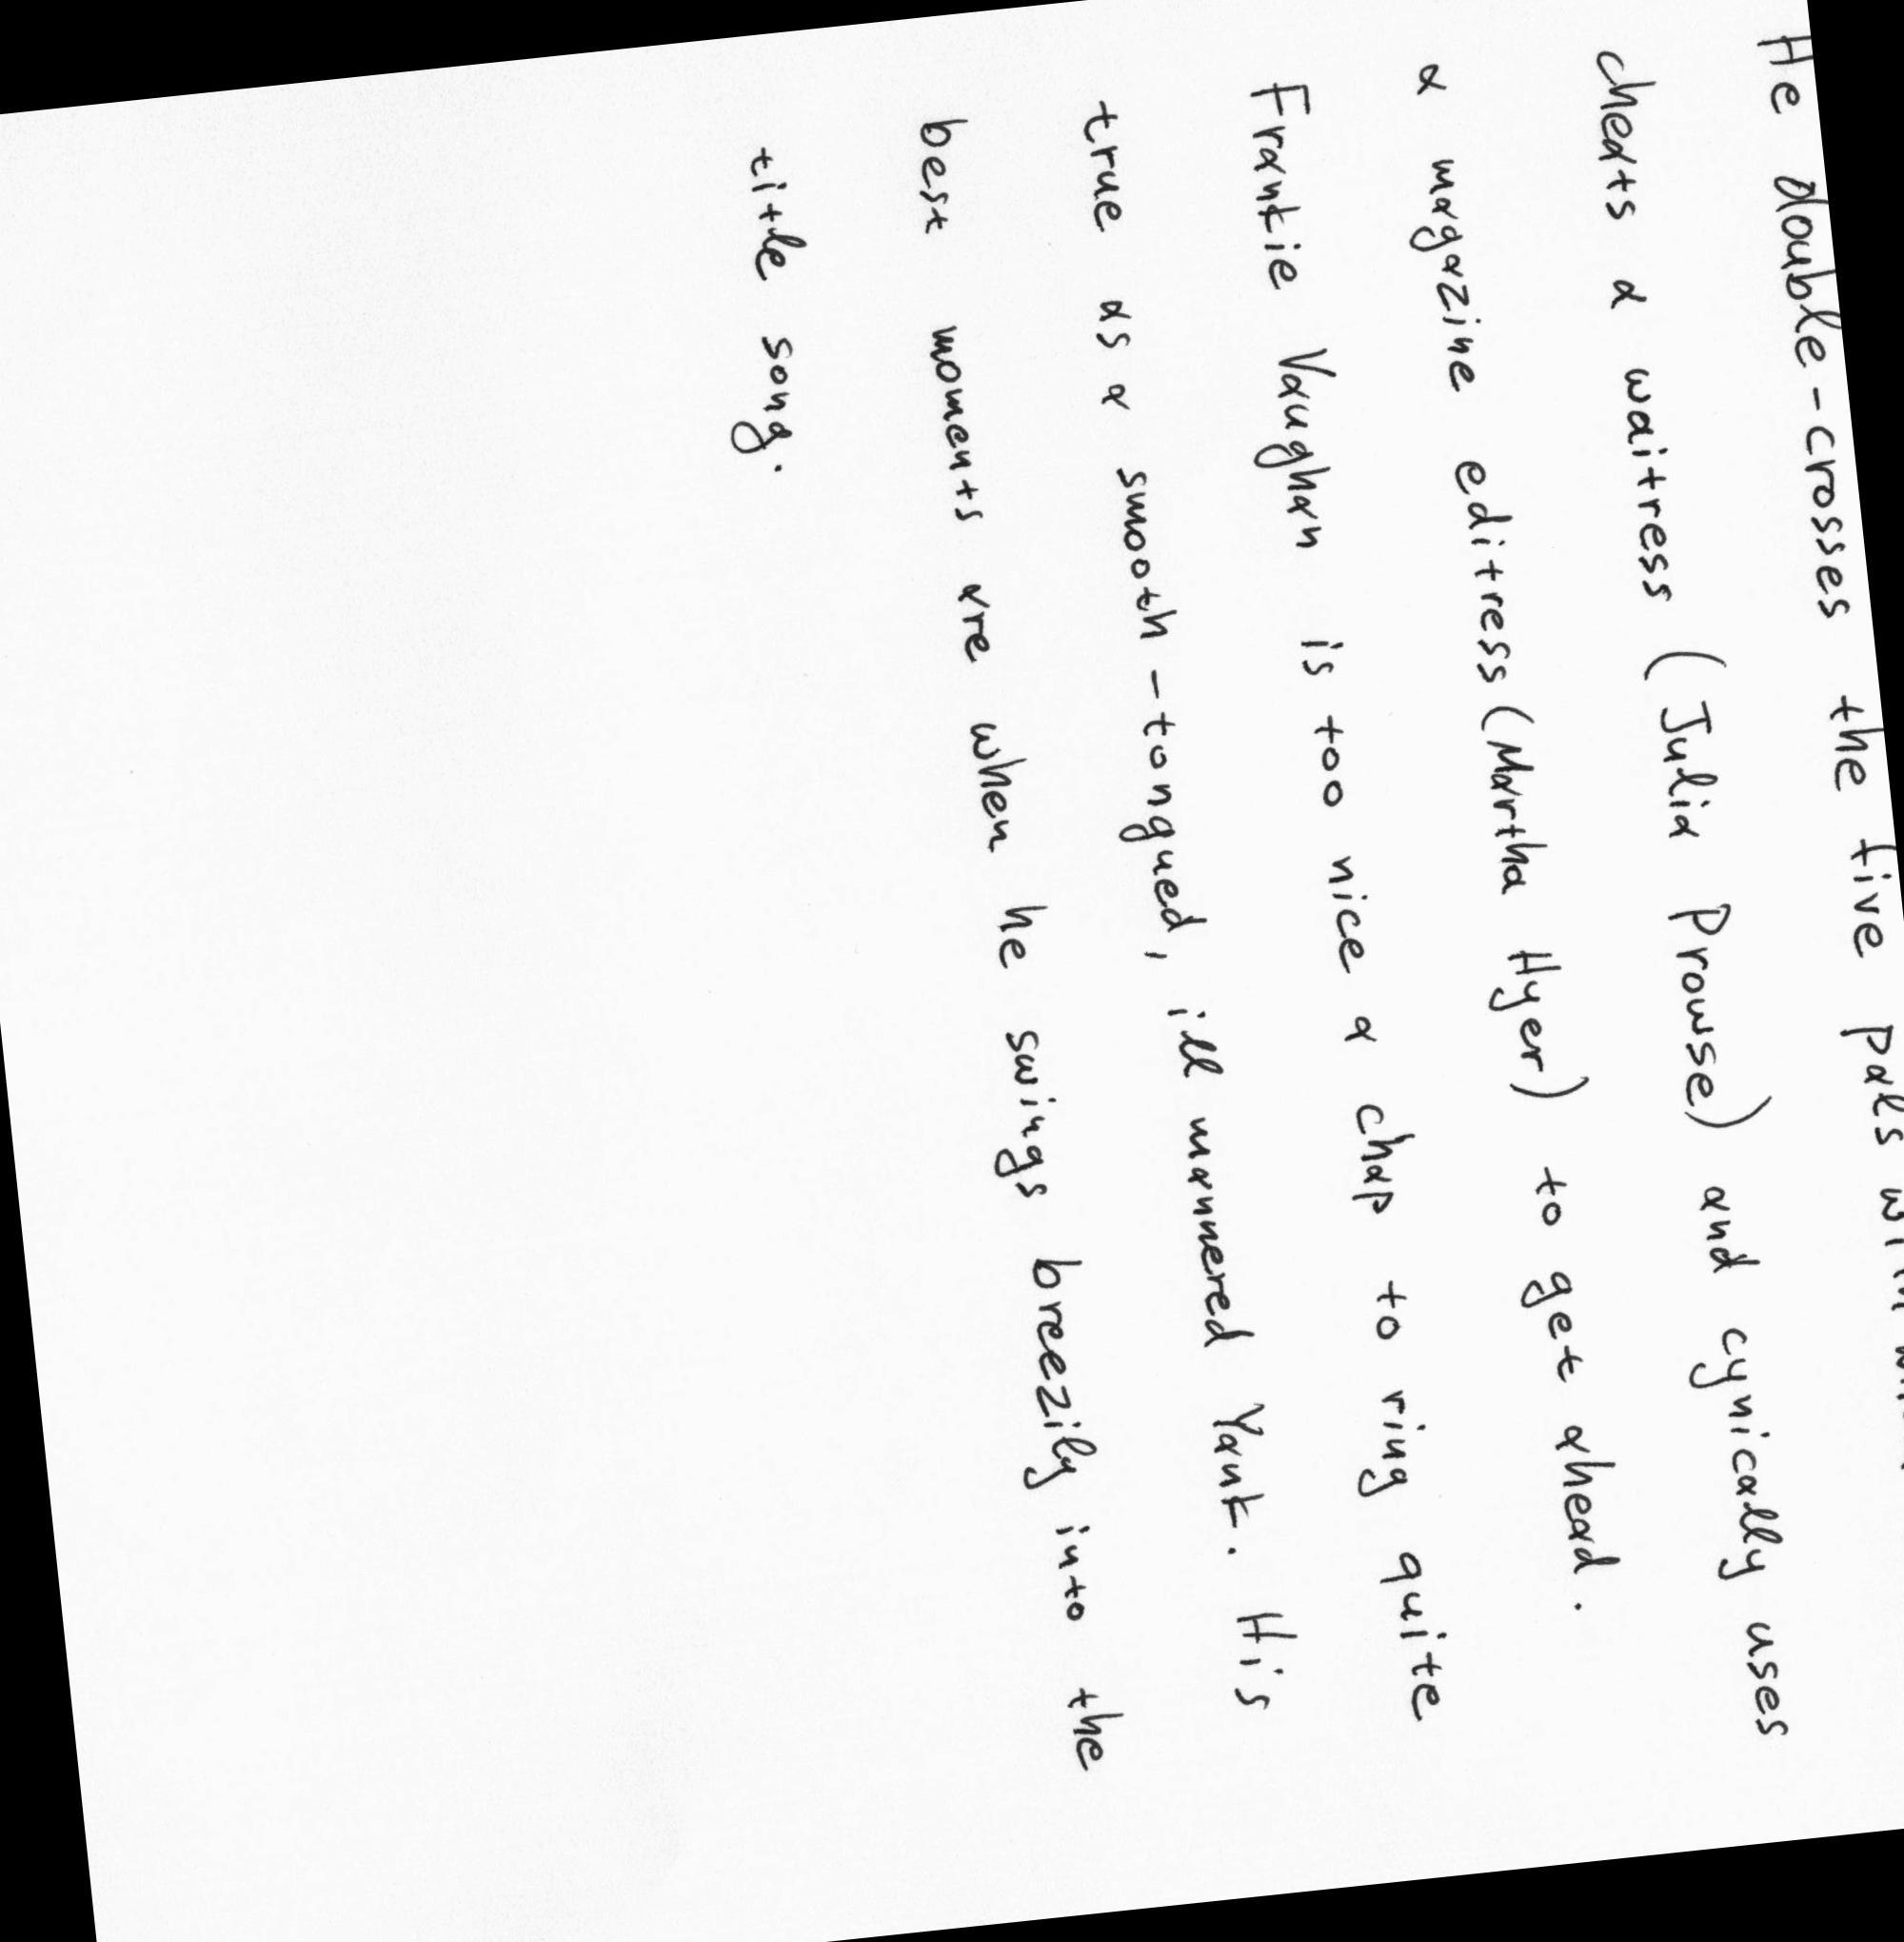 He double-crosses the five pals
cheats a waitress (Julia Prowse) and cynically uses
a magazine editress (Martha Hyer) to get ahead.
Frankie Vaughan is too nice a chap to ring quite
true as a smooth-tongued, ill mannered Yank. His
best moments are when he swings breezily into the
title song.